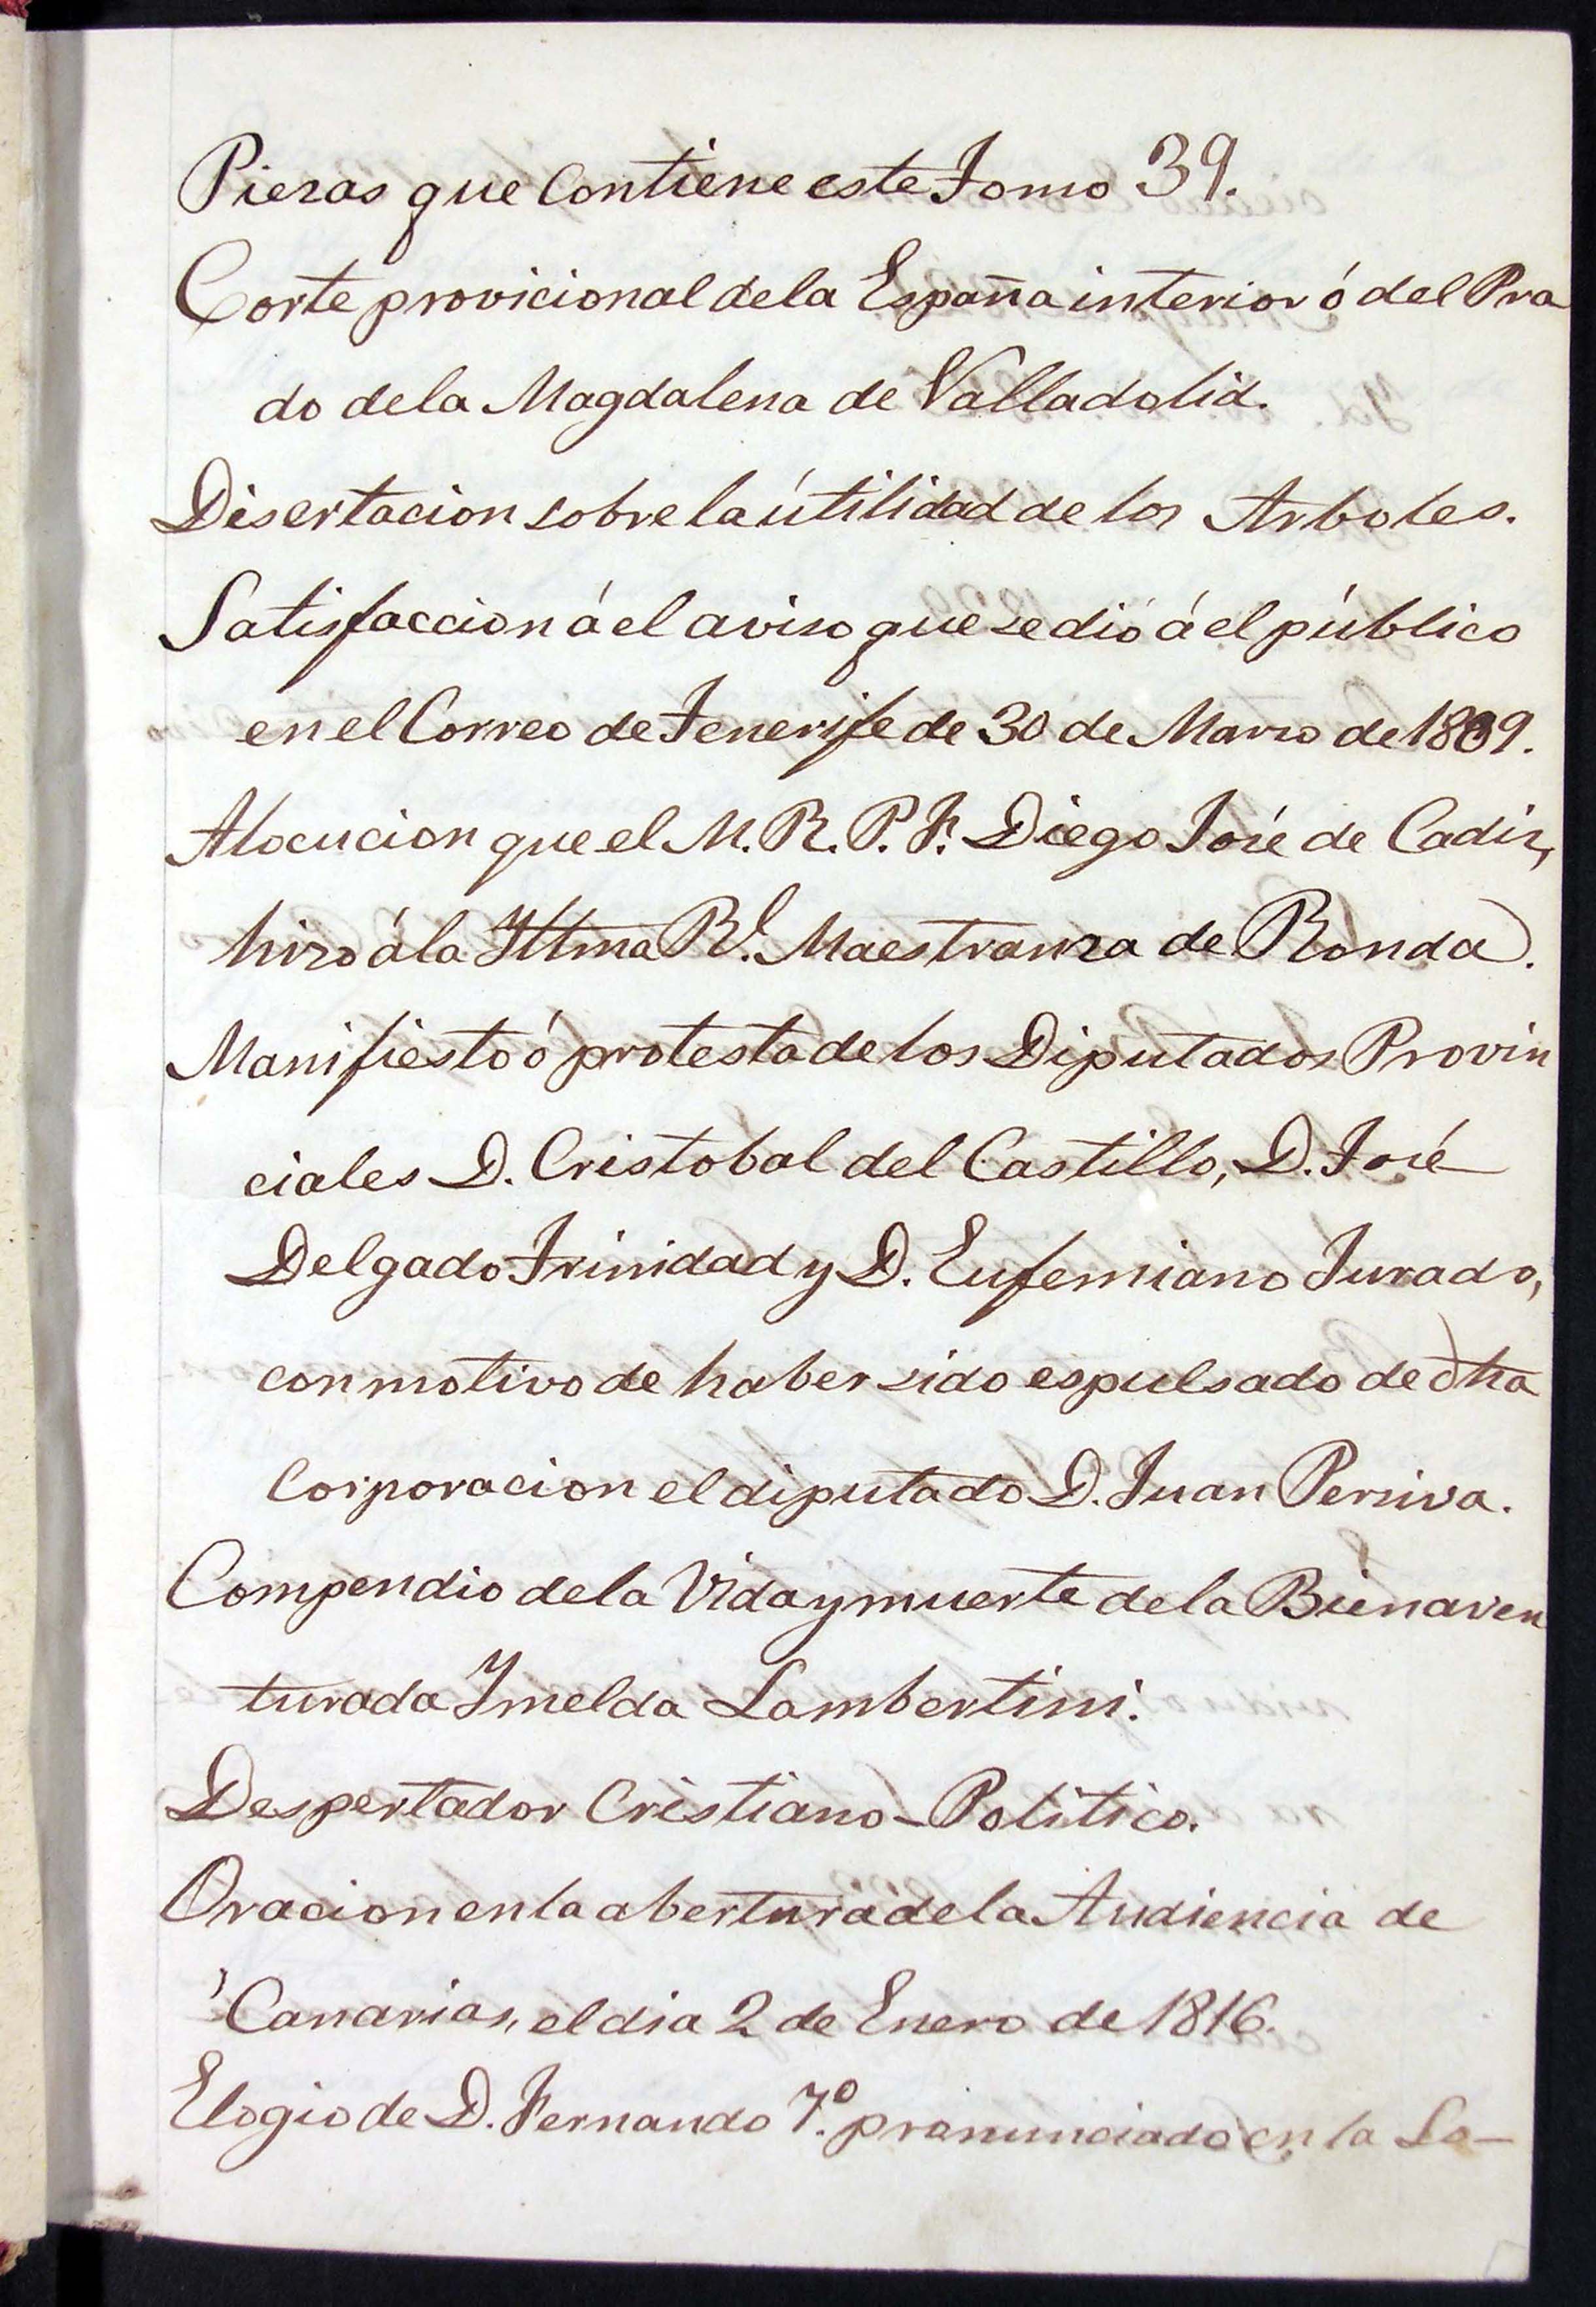 Piezas que contiene este Tomo 39.
Corte provicional de la España interior ó del Pra
do de la Magdalena de Valladolid.
Disertacion sobre la útilidad de los Arboles.
Satisfaccion á el aviso que se dió á el público
en el Correo de Tenerife de 30 de Marzo de 1809.
Alocucion que el M. R. P. F. Diego José de Cadiz,
hizo á la Illma Rl. Maestranza de Ronda.
Manifiesto ó protesta de los Diputados Provin
ciales D. Cristobal del Castillo, D. José
Delgado Trinidad y D. Eufemiano Jurado,
con motivo de haber sido espulsado de dha
Corporacion el diputado D. Juan
Compendio de la Vida y muerte de la Bienaven
turada Ymelda Lambertini.
Despertador Cristiano-Politico.
Oracion en la abertura de la Audiencia de
Canarias, el dia 2 de Enero de 1816.
Elogio de D. Fernando 7º. pronunciado en la So-